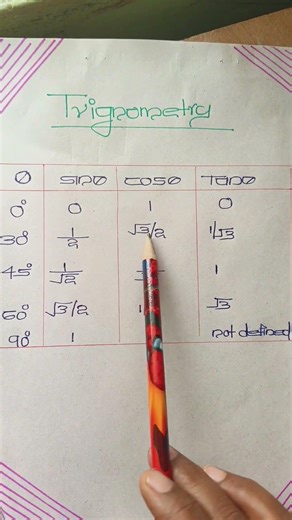 Trignometry
θ sinθ cosθ Tanθ
0° 0 1 0
30° 1/2 √3/2 1/√3
45° 1/√2 1
60° √3/2 √3
90° 1 not defined